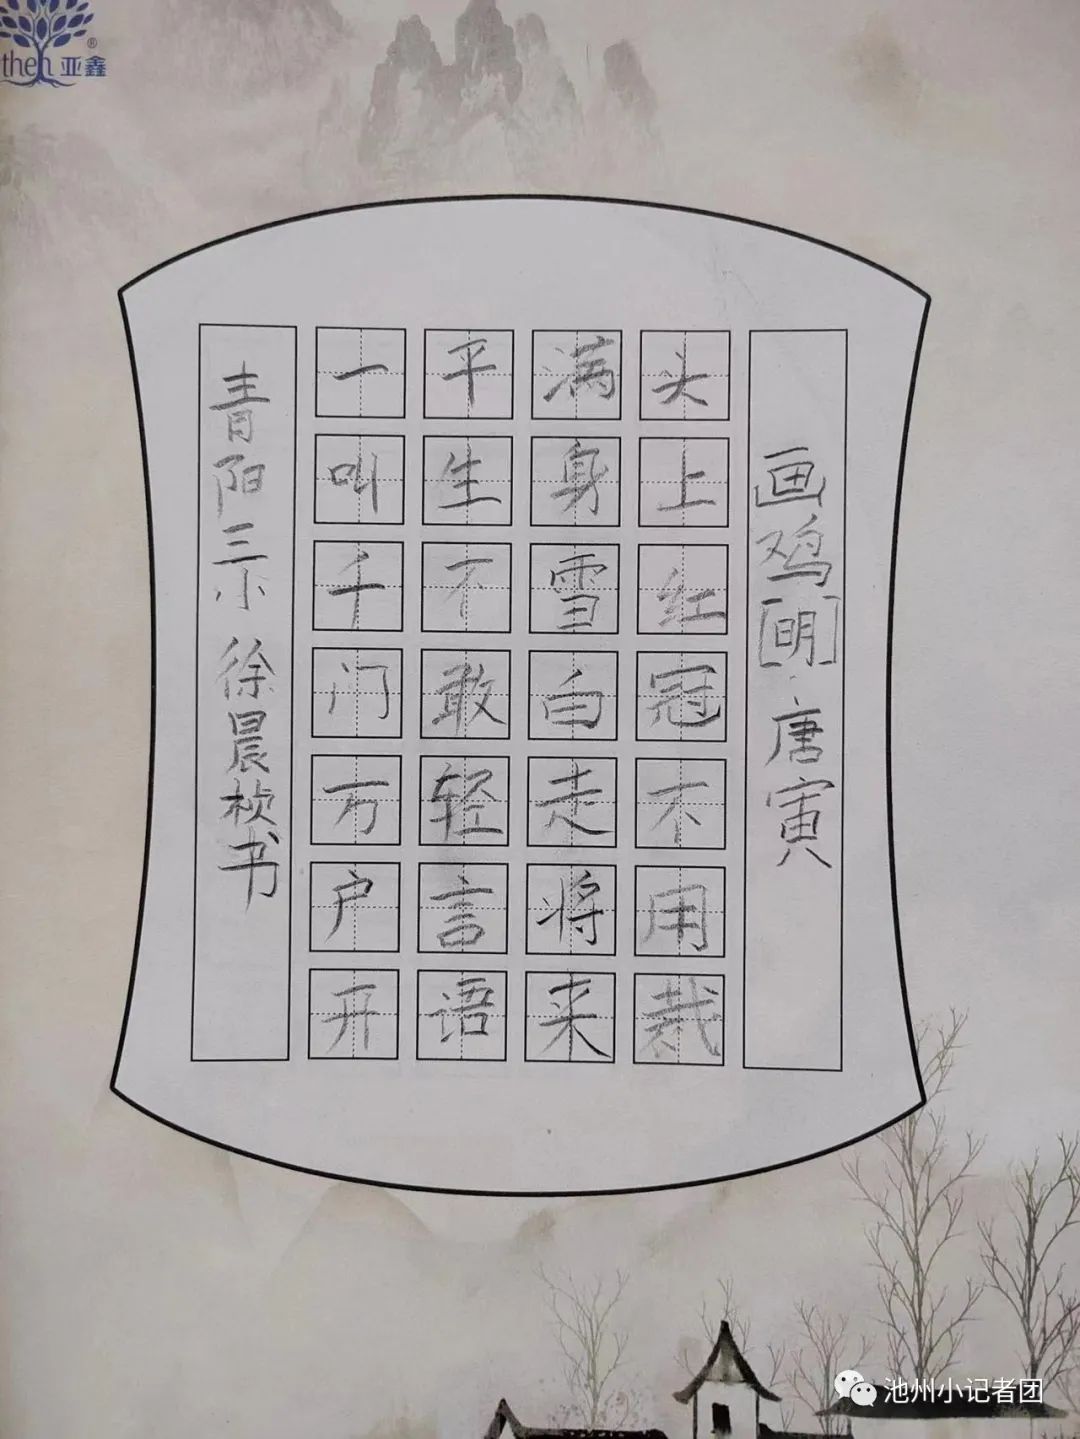 then® 亚鑫
画鸡[明]·唐寅
头上红冠不用裁
满身雪白走将来
平生不敢轻言语
一叫千门万户开
青阳三小 徐晨桢书
池州小记者团